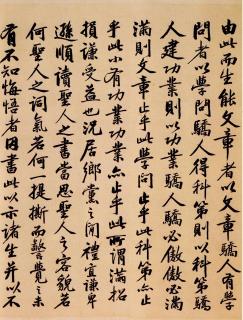 由此而生能文章者以文章驕人有學
問者以學問驕人得科第則以科第驕
人建功業則以功業驕人必傲傲必滿
滿則文章止乎此學問止乎此科第亦止
乎此小有功業功業亦止乎此所謂滿招
損謙受益也況居鄉黨之間禮宜謙卑
遜順讀聖人之書當思聖人之容貌若
何聖人之詞氣若何一提撕而警覺之未
有不知悔悟者因書此以示諸生并以不